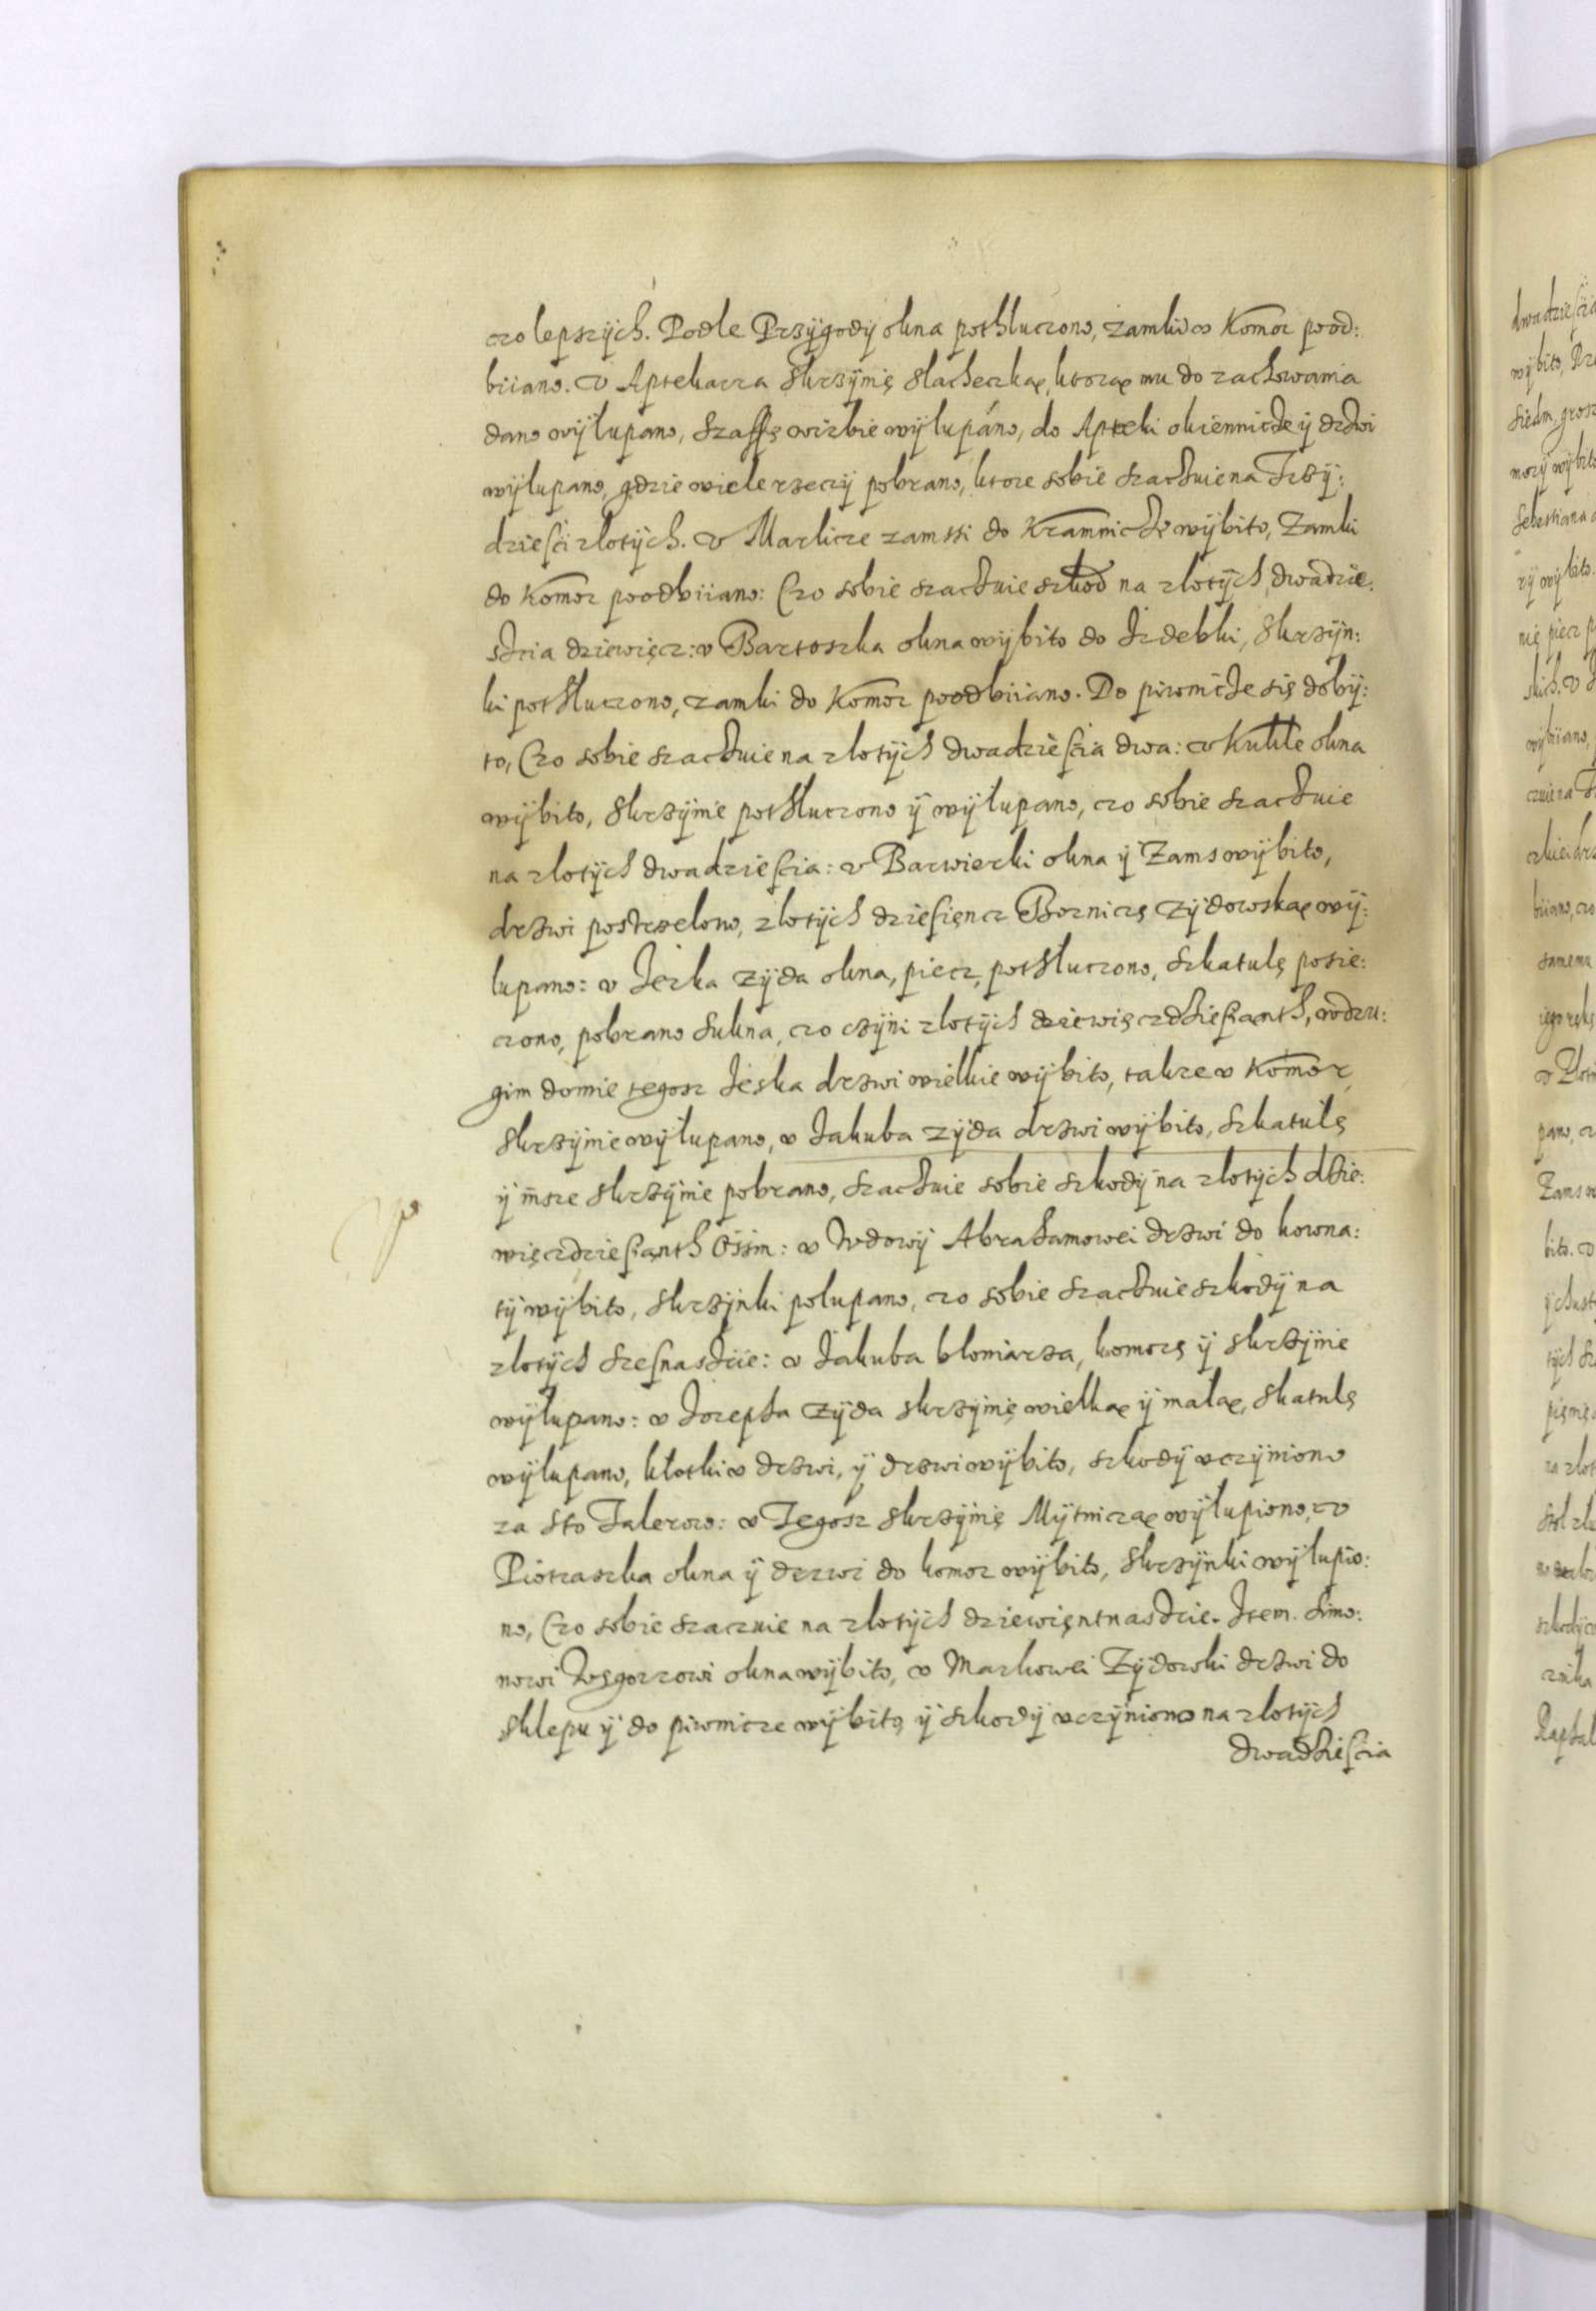 czo lepszÿch. Podle Przÿgodÿ okna pothluczono, zamki v Komor pood:
biiano. v Aptekarza skrzÿnię slacheczkaę, ktoraę mu do zachowania
dano wÿlupano, szaffę wizbie wÿlupáno, do Apteki okiennicze ÿ drzwi
wÿlupano, gdzie wiele rzeczÿ pobrano, ktore sobie szaczuie na Trzÿ:
dziesci zlotÿch. v Marlicze zamki do Kramnicze wÿbito, Zamki
do Komor poodbiiano: Czo sobie szaczuie szkod na zlotÿch dwadzie:
scia dziewięcz: v Bartoszka okna wÿbito do Izdebki, Skrzÿn:
ki pothluczono, zamki do Komor poodbiiano. Do piwnicze się dobÿ:
to, Czo sobie szaczuie na zlotÿch dwadziescia dwa: v Kukle okna
wÿbito, Skrzÿnie pothluczono ÿ wÿlupano, czo sobie szaczuie
na zlotÿch dwadziescia: v Barwierki okna ÿ Zams wÿbito,
drzwi postrzelono, zlotÿch dziesięncz Boznicę Zÿdowskaę wÿ:
lupano: v Jezka Zÿda okna, piecz, pothluczono, szkatulę posie:
czono, pobrano sukna, czo czÿni zlotÿch dziewięczdziesiąnth, w dru:
gim domie tegosz Jeska drzwi wielkie wÿbito, takze v Komor
skrzÿnie wÿlupano, v Jakuba Zÿda drzwi wÿbito, szkatulę
ÿ insze skrzÿnie pobrano, szaczuie sobie szkodÿ na zlotÿch dzie:
więczdziesiąnth Ossm: v Wdowÿ Abrahamowei drzwi do komna:
tÿ wÿbito, skrzÿnki polupano, czo sobie szaczuie szkodÿ na
zlotÿch szesnasczie: v Jakuba bloniarza, komorę ÿ skrzÿnie
wÿlupano: v Jozepha Zÿda skrzÿnię wielkaę ÿ malaę, skatulę
wÿlupano, klotki v drzwi, ÿ drzwi wÿbito, szkodÿ vczÿniono
za sto Talerow: v Tegosz skrzÿnię Mÿtniczaę wÿlupiono, v
Piotraszka okna ÿ drzwi do komor wÿbito, skrzÿnki wÿlupio:
no, Czo sobie szaczuie na zlotÿch dziewięntnasczie. Item. Simo:
nowi Węgorzowi okna wÿbito, v Markowei Zÿdowki drzwi do
sklepu ÿ do piwnicze wÿbito ÿ szkodÿ vczÿniono na zlotÿch
dwadziescia